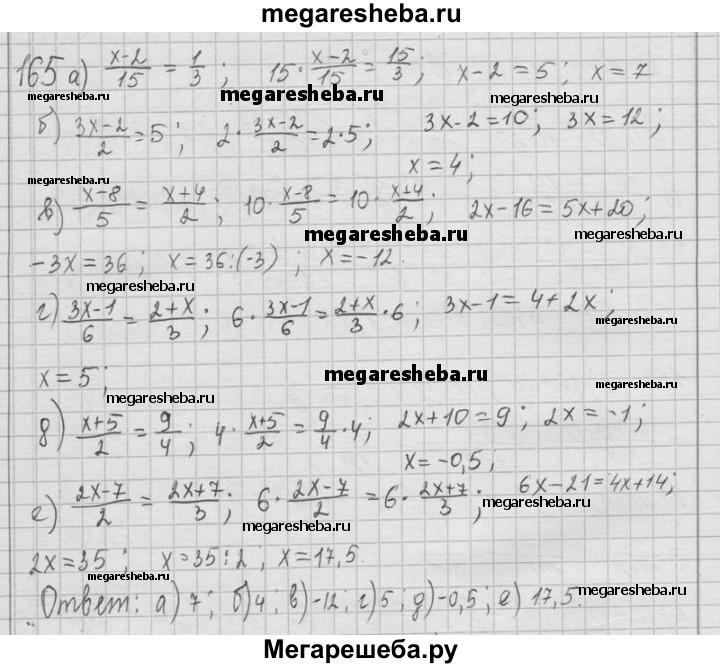 megaresheba.ru
165 а) (x-2)/15 = 1/3 ; 15 · (x-2)/15 = 15/3 ; x-2 = 5 ; x = 7
megaresheba.ru megaresheba.ru megaresheba.ru
б) (3x-2)/2 = 5 ; 2 · (3x-2)/2 = 2·5 ; 3x-2 = 10 ; 3x = 12 ;
x = 4 ;
megaresheba.ru
в) (x-8)/5 = (x+4)/2 ; 10 · (x-8)/5 = 10 · (x+4)/2 ; 2x-16 = 5x+20 ;
megaresheba.ru megaresheba.ru
-3x = 36 ; x = 36:(-3) ; x = -12.
г) (3x-1)/6 = (2+x)/3 ; 6 · (3x-1)/6 = (2+x)/3 · 6 ; 3x-1 = 4+2x ;
megaresheba.ru
x = 5 ;
megaresheba.ru megaresheba.ru
megaresheba.ru
д) (x+5)/2 = 9/4 ; 4 · (x+5)/2 = 9/4 · 4 ; 2x+10 = 9 ; 2x = -1 ;
x = -0,5 ;
megaresheba.ru
е) (2x-7)/2 = (2x+7)/3 ; 6 · (2x-7)/2 = 6 · (2x+7)/3 ; 6x-21 = 4x+14 ;
megaresheba.ru megaresheba.ru
2x = 35 ; x = 35:2 ; x = 17,5.
megaresheba.ru
Ответ: а) 7 ; б) 4 ; в) -12 ; г) 5 ; д) -0,5 ; е) 17,5.
megaresheba.ru
Мегарешеба.ру